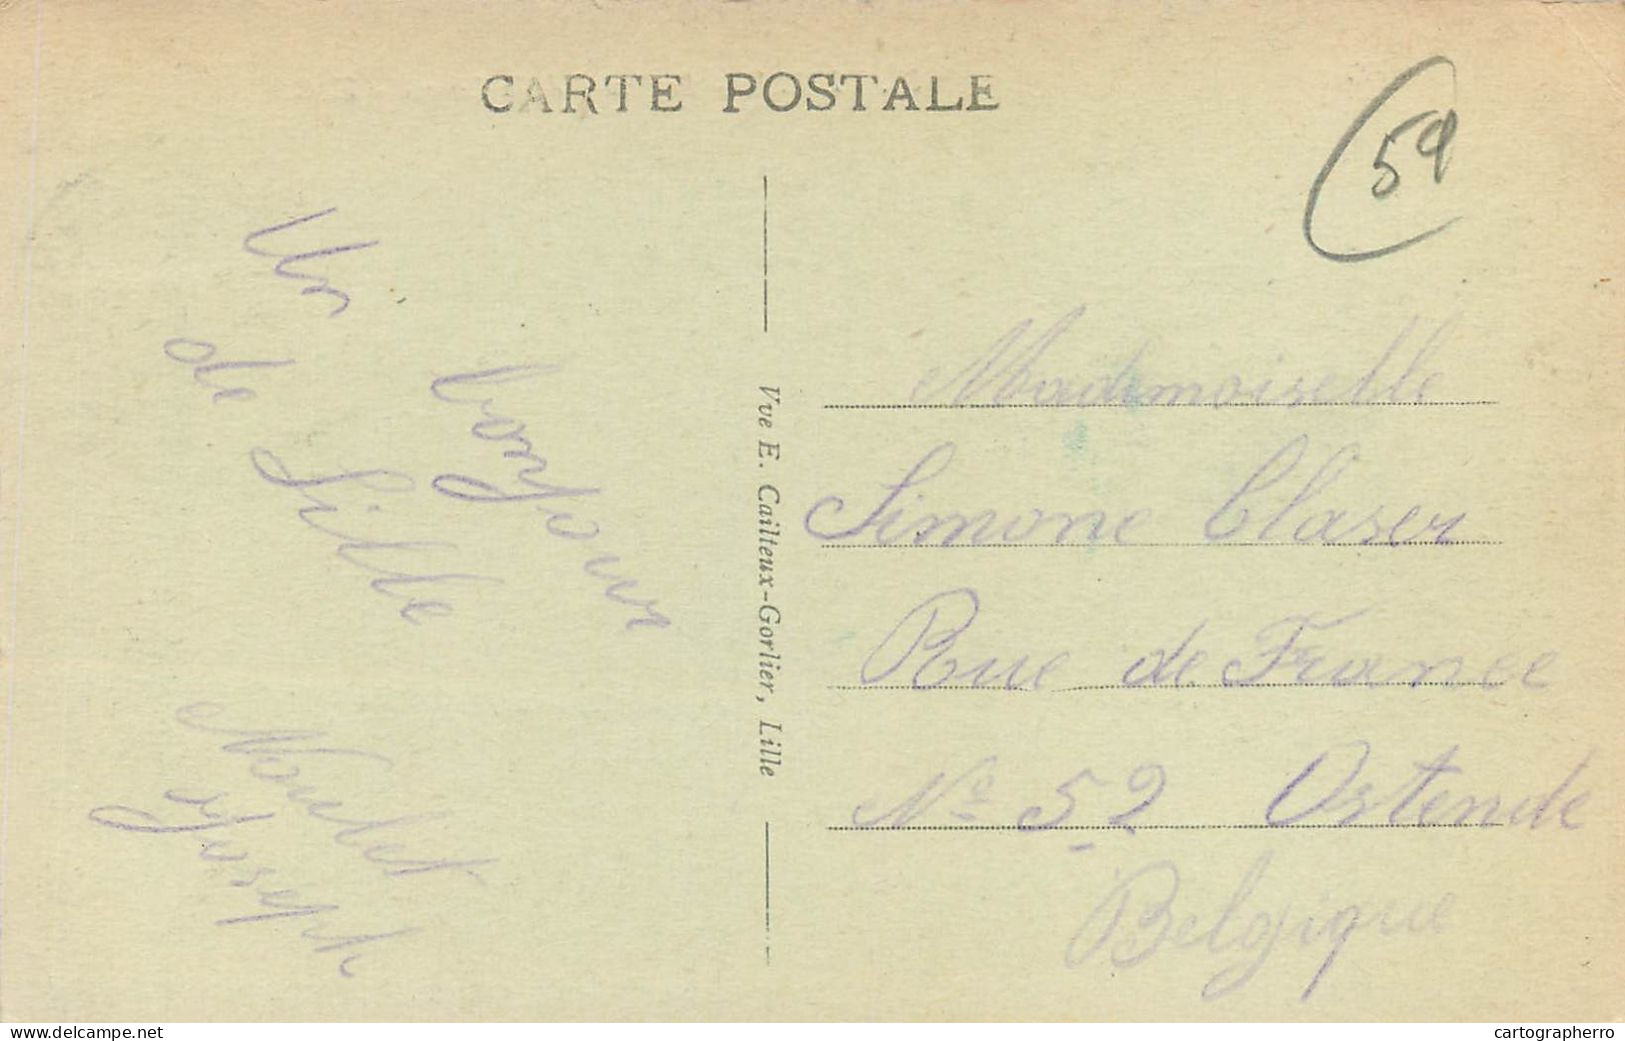 CARTE POSTALE
59
Un bonjour
de Lille
Noulet
Joseph
Vve E. Cailteux-Gorlier, Lille
Mademoiselle
Simone Claser
Rue de France
No 52 Ostende
Belgique
www.delcampe.net
cartographerro